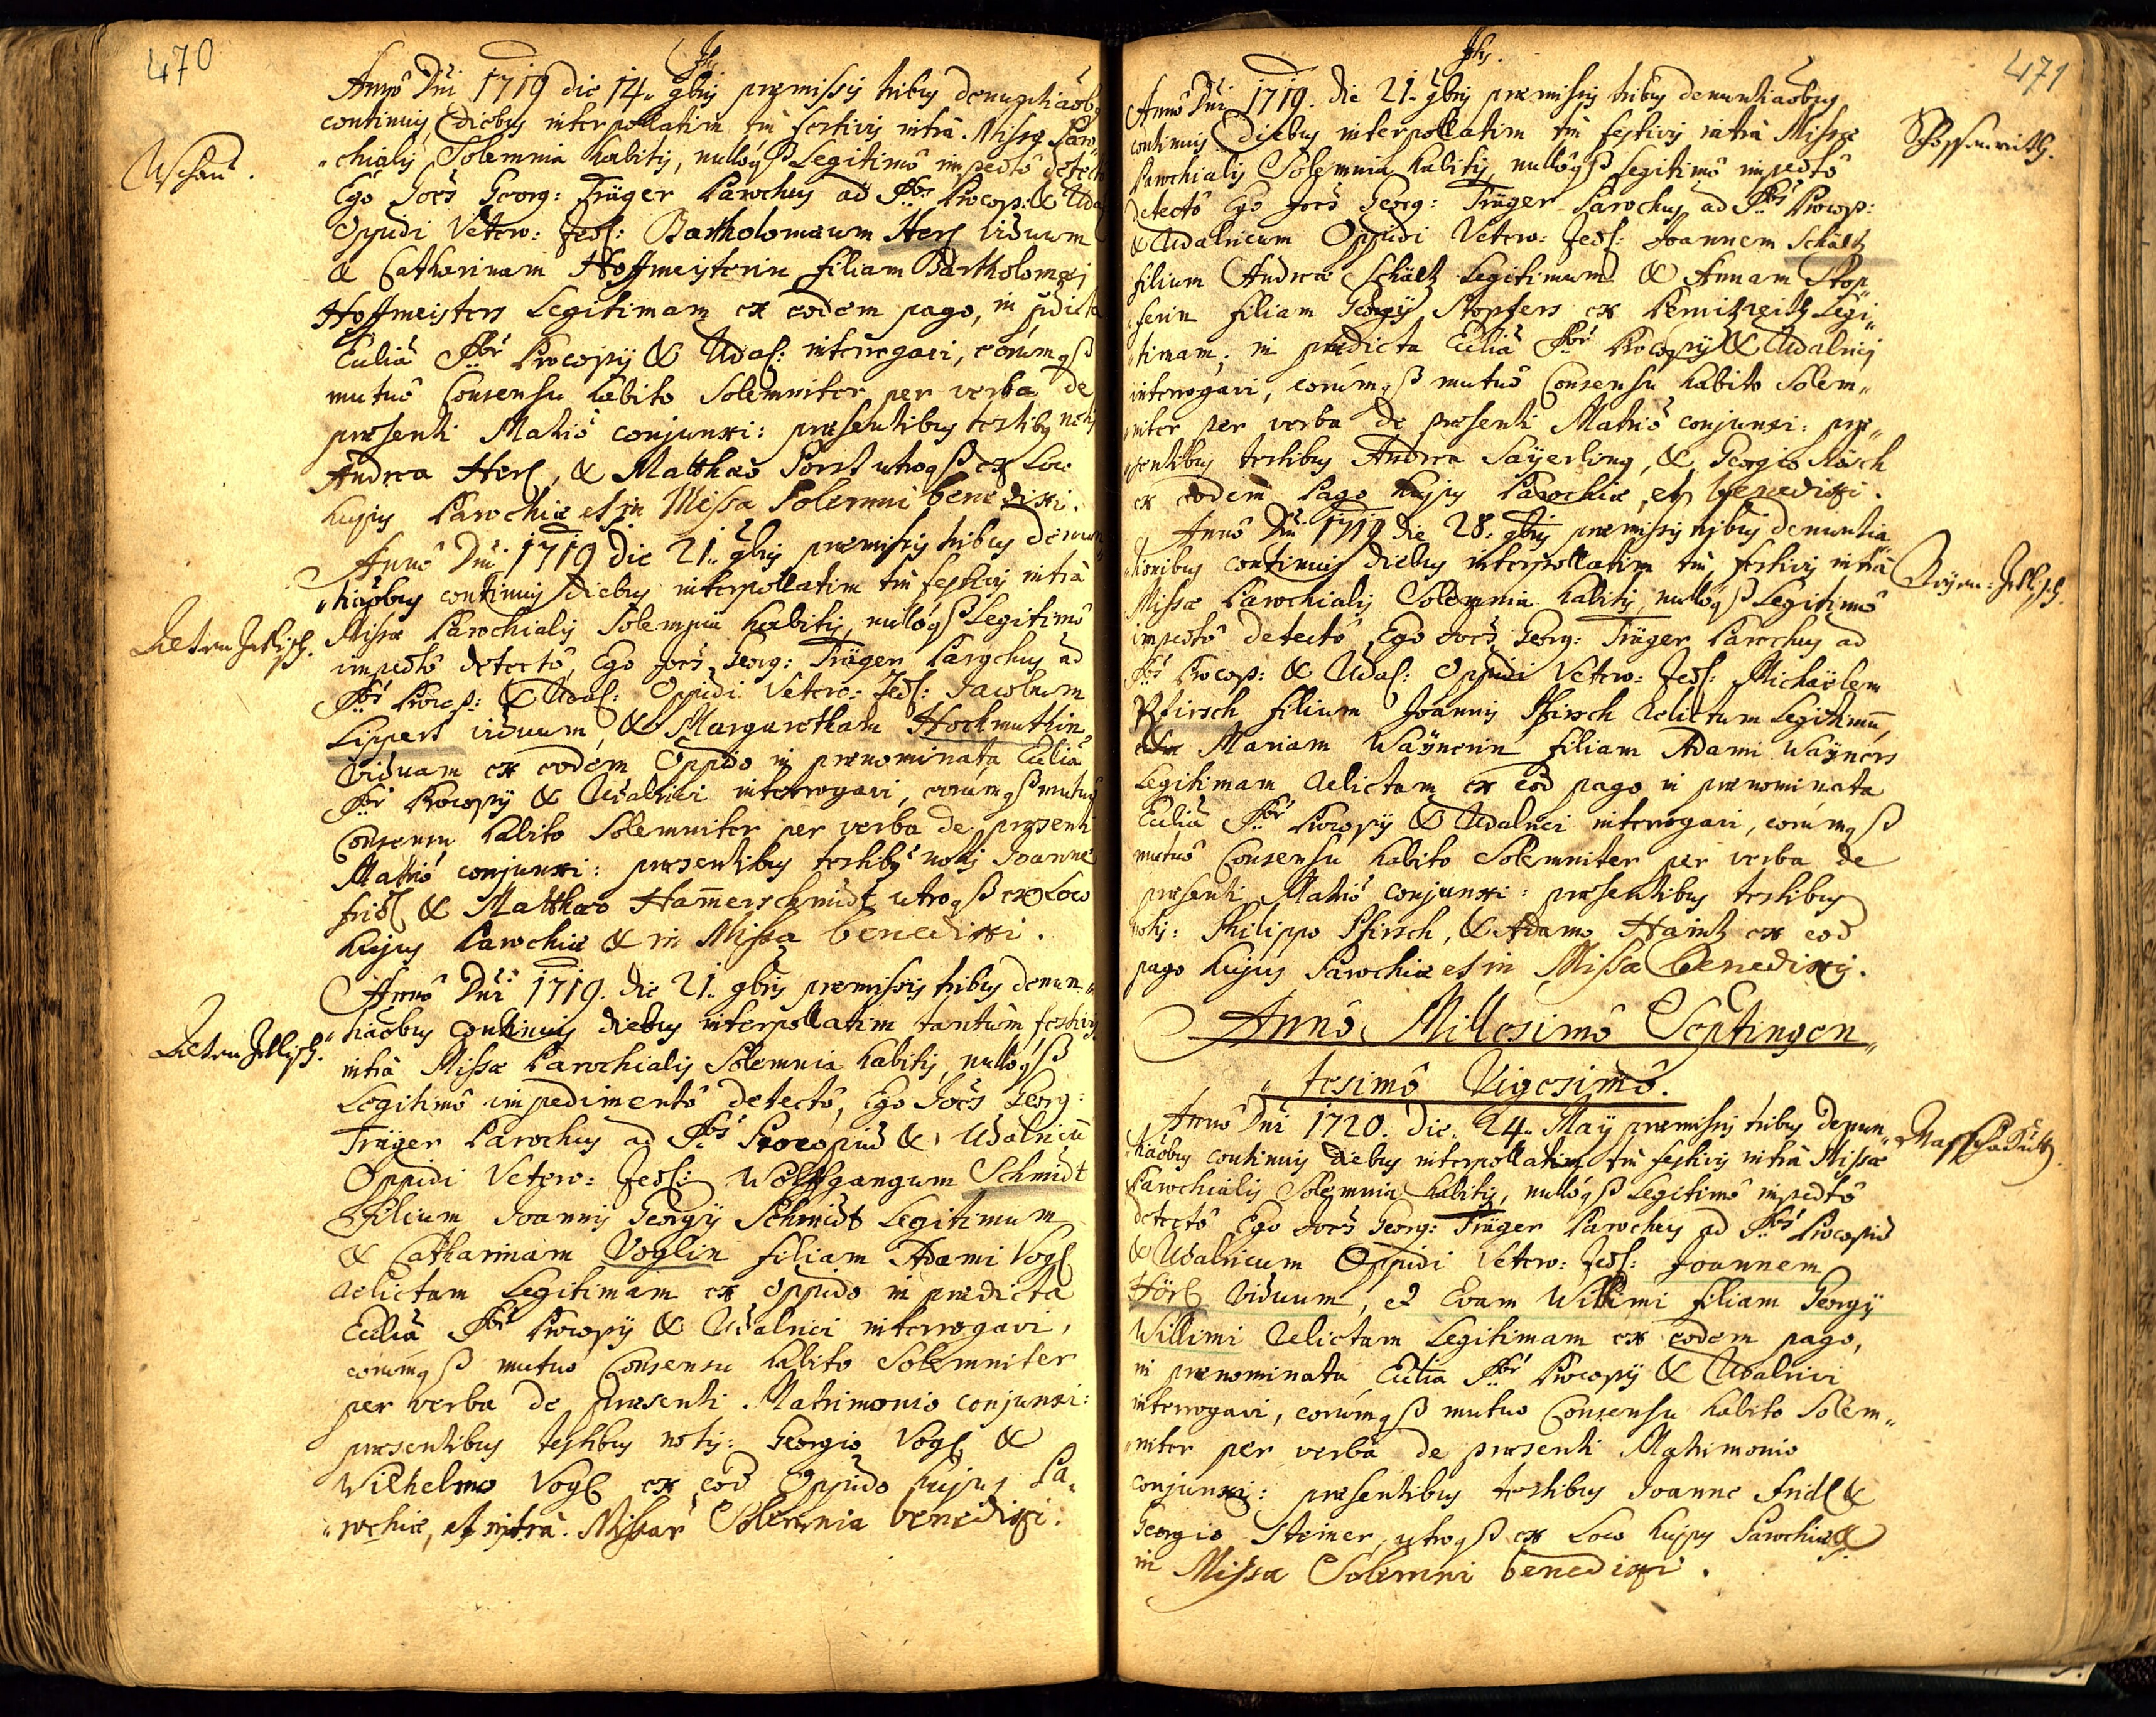 470
Annô Dni 1719 die 14. 9bris præmissis tribus denuntiaõbus
continuis diebus interpollatim tm̃ festivis intra Missæ Paro„
Uschau.
„chialis Solemnia habitis, nullôqß Legitimô impedtô detectô
Ego Joēs Georg: Träger Parochus ad SSos Procop: & Udal
Oppidi Vetero: Zedl: Bartholomæum Herl viduum
& Catharinam Hoffmeisterin filiam Bartholomæi
Hoffmeisters Legitimam ex eodem pago, in pdicta
Ecclia SSor Procopij & Udal: interrogavi, eorumqß
mutuô Consensu habito Solemniter per verba de
præsenti Matriô conjunxi: præsentibus testibg notis
Andrea Herl, & Matthæo Forst utroqß ex Loco
hujus Parochiæ et in Missa Solemni benedixi.
Annô Dni 1719 die 21. 9bris præmissis tribus denun„
„tiaõbus continuis diebus interpollatim tm̃ festivis intra
Altenzedlisch.
Missæ Parochialis Solemnia habitis, nullôqß Legitimô
impedtô detectô, Ego Joēs Georg: Träger Parochus ad
SSos Procop: & Udal: Oppidi Vetero: Zedl: Jacobum
Lippert viduum, & Margaretham Hochmuthin,
Viduam ex eodem Oppido in prænominata Ecclia
SSor Procopij & Udalrici interrogavi, eorumqß mutuô
Consensu habito Solemniter per verba de præsenti
Matriô conjunxi: præsentibus testibg notis Joanne
fridl & Matthæo Ham̃erschmidt utroqß ex Loco
hujus Parochiæ & in Missa benedixi.
Annô Dni 1719. die 21. 9bris præmissis tribus denun„
„tiaõbus continuis diebus interpollatim tantùm festivis
Altenzedlisch.
intra Missæ Parochialis Solemnia habitis, nullôqß
Legitimô impedimentô detectô, Ego Joēs Georg:
Träger Parochus ad SSos Procopiũ & Udalricũ
Oppidi Vetero: Zedl: Wolffgangum Schmidt
filium Joannis Georgij Schmidt Legitimum
& Catharinam Voglin filiam Adami Vogl
relictam Legitimam ex Oppido in prædicta
Ecclia SSor Procopij & Udalrici interrogavi,
eorumqß mutuo Consensu habito Solemniter
per verba de præsenti Matrimonio conjunxi:
præsentibus testibus notis: Georgio Vogl &
Wilhelmo Vogl ex eod Oppido hujus Pa„
„rochiæ, et intra Missar Solemnia benedixi.
471
Annô Dni 1719. die 21. 9bris præmissis tribus denuntiaõbus
continuis diebus interpollatim tm̃ festivis intra Missæ
Parochialis Solemnia habitis, nullôqß Legitimô impedtô
detectô Ego Joēs Georg: Träger Parochus ad SSos Procop:
& Udalricum Oppidi Vetero: Zedl: Joannem Schältz
filium Andreæ Schältz Legitimum & Annam Stop„
„ferin filiam Georgij Stopfers ex Legi„
„timam, in prædicta Ecclia SSor Procopij & Udalrici
interrogavi, eorumqß mutuô Consensu habito Solem„
„niter per verba de præsenti Matriô conjunxi: præ„
„sentibus testibus Andrea Saÿerling, & Georgio
ex eodem Pago hujus Parochiæ, et benedixi.
Annô Dni 1719 die 28. 9bris præmissis tribus denuntia„
„tionibus continuis diebus interpollatim tm̃ festivis intra
Missæ Parochialis Solemnia habitis, nullôqß Legitimô
impedtô detectô, Ego Joēs Georg: Träger Parochus ad
SSos Procop: & Udal: Oppidi Vetero: Zedl: Michaëlem
Pfirsch filium Joannis Pfirsch relictum Legitimũ,
& Mariam Waÿnerin filiam Adami Waÿners
Legitimam relictam ex eod pago in prænominata
Ecclia SSor Procopij & Udalrici interrogavi, eorumqß
mutuô Consensu habito Solemniter per verba de
præsenti Matriô conjunxi: præsentibus testibus
notis: Philippo Pfirsch, & Adamo Haintz ex eod
pago hujus Parochiæ et in Missa benedixi.
Annô Millesimô Septingen„
„tesimô Vigesimô.
Anno Dni 1720. die. 24. Maÿ præmissis tribus denun„
„tiaõbus continuis diebus interpollatim tm̃ festivis intra Missæ
Parochialis Solemnia habitis, nullôqß Legitimô impedtô
detectô Ego Joēs Georg: Träger Parochus ad SSos Procopiũ
& Udalricum Oppidi Vetero: Zedl: Joannem
Hörl viduum, et Evam Willimi filiam Georgij
Willimi relictam Legitimam ex eodem pago,
in prænominata Ecclia SSor Procopij & Udalrici
interrogavi, eorumqß mutuo Consensu habito Solem„
„niter per verba de præsenti Matrimonio
conjunxi: præsentibus testibus Joanne fridl &
Georgio Steiner, utroqß ex Loco hujus Parochiæ &
in Missa Solemni benedixi.